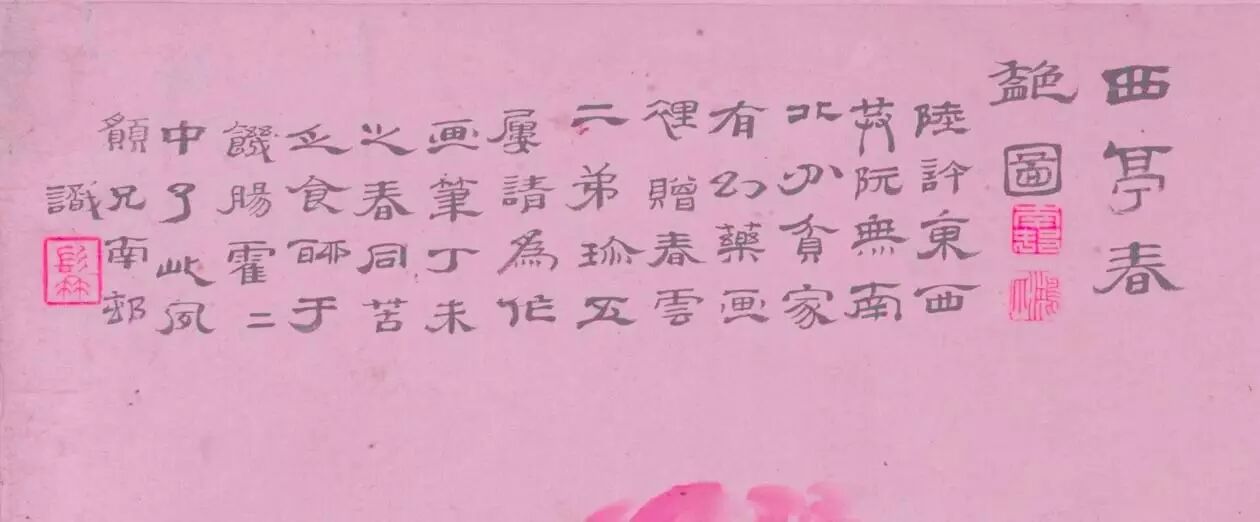 西亭春
艷圖
陸許東西
阮無南
北分貧家
有幻藥画
裡贈春雲
二弟珎五
屢請為作
画筆丁未
之春同苦
乏食聊于
饑腸霍二
中了此夙
願兄南邨
識